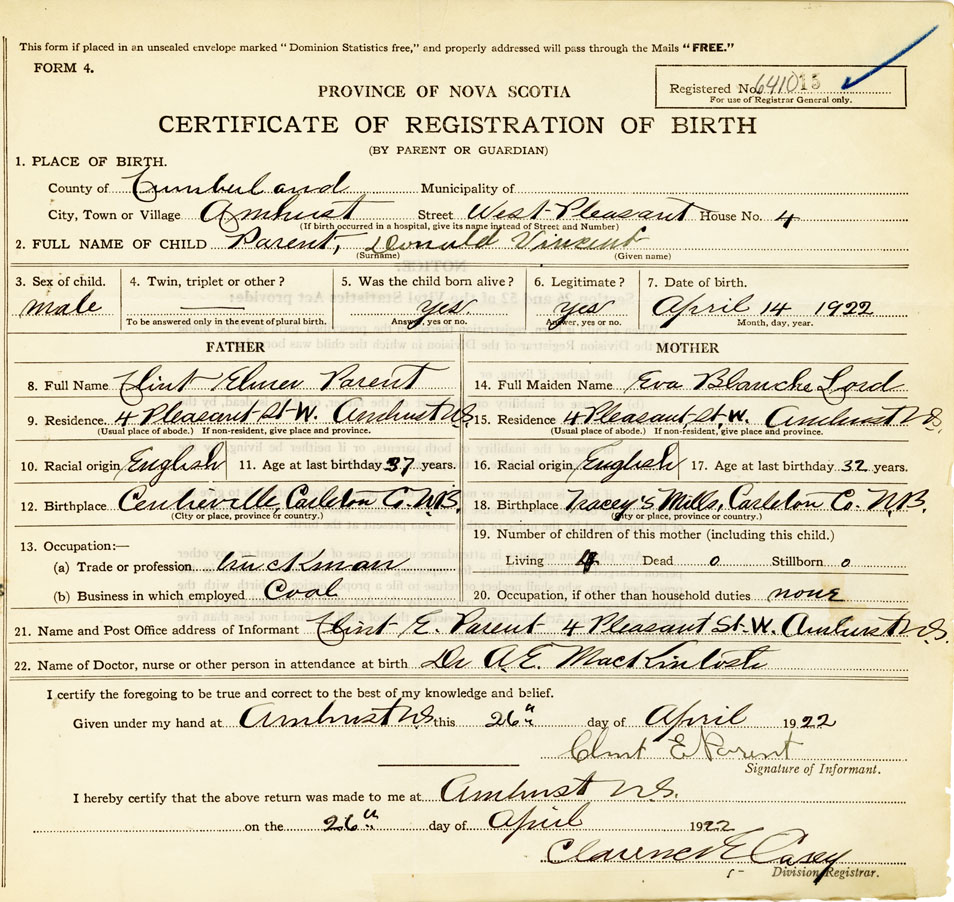 This form if placed in an unsealed envelope marked "Dominion Statistics free," and properly addressed will pass through the Mails "FREE."
FORM 4.
Registered No. 641015
For use of Registrar General only.
PROVINCE OF NOVA SCOTIA
CERTIFICATE OF REGISTRATION OF BIRTH
(BY PARENT OR GUARDIAN)
1. PLACE OF BIRTH.
County of Cumberland Municipality of
City, Town or Village Amherst Street West Pleasant House No. 4
(If birth occurred in a hospital, give its name instead of Street and Number)
2. FULL NAME OF CHILD Parent, Donald Vincent
(Surname) (Given name)
3. Sex of child. 4. Twin, triplet or other? 5. Was the child born alive? 6. Legitimate? 7. Date of birth.
male — yes. yes April 14 1922
To be answered only in the event of plural birth. Answer, yes or no. Answer, yes or no. Month, day, year.
FATHER MOTHER
8. Full Name Clint Elmer Parent 14. Full Maiden Name Eva Blanche Lord
9. Residence. 4 Pleasant St. W. Amherst N.S. 15. Residence 4 Pleasant St. W. Amherst N.S.
(Usual place of abode.) If non-resident, give place and province. (Usual place of abode.) If non-resident, give place and province.
10. Racial origin English 11. Age at last birthday 37 years. 16. Racial origin English 17. Age at last birthday 32 years.
12. Birthplace Centreville, Carleton Co. N.B. 18. Birthplace Tracey's Mills, Carleton Co. N.B.
(City or place, province or country.) (City or place, province or country.)
13. Occupation:— 19. Number of children of this mother (including this child.)
(a) Trade or profession truckman Living 4 Dead 0 Stillborn 0
(b) Business in which employed Coal 20. Occupation, if other than household duties none
21. Name and Post Office address of Informant Clint E. Parent 4 Pleasant St. W. Amherst N.S.
22. Name of Doctor, nurse or other person in attendance at birth Dr A.E. MacKintosh
I certify the foregoing to be true and correct to the best of my knowledge and belief.
Given under my hand at Amherst N.S. this 26th day of April 1922
Clint E Parent
Signature of Informant.
I hereby certify that the above return was made to me at Amherst N.S.
on the 26th day of April 1922
Clarence E Casey
Division Registrar.